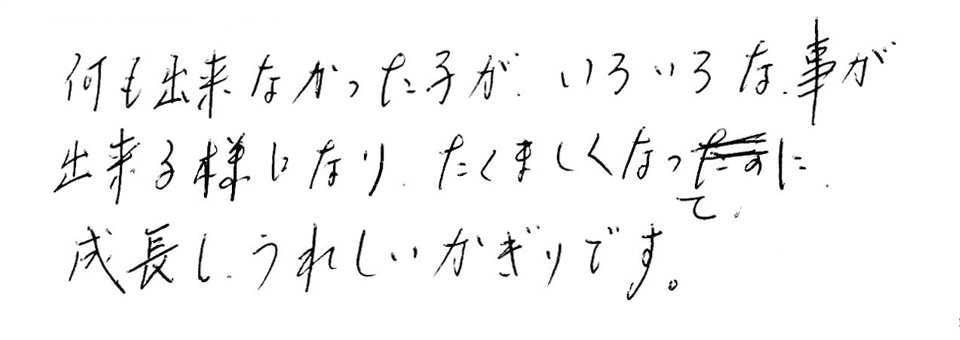 何も出来なかった子が、いろいろな、事が
出来る様になり、たくましくなって、に、
成長し、うれしいかぎりです。